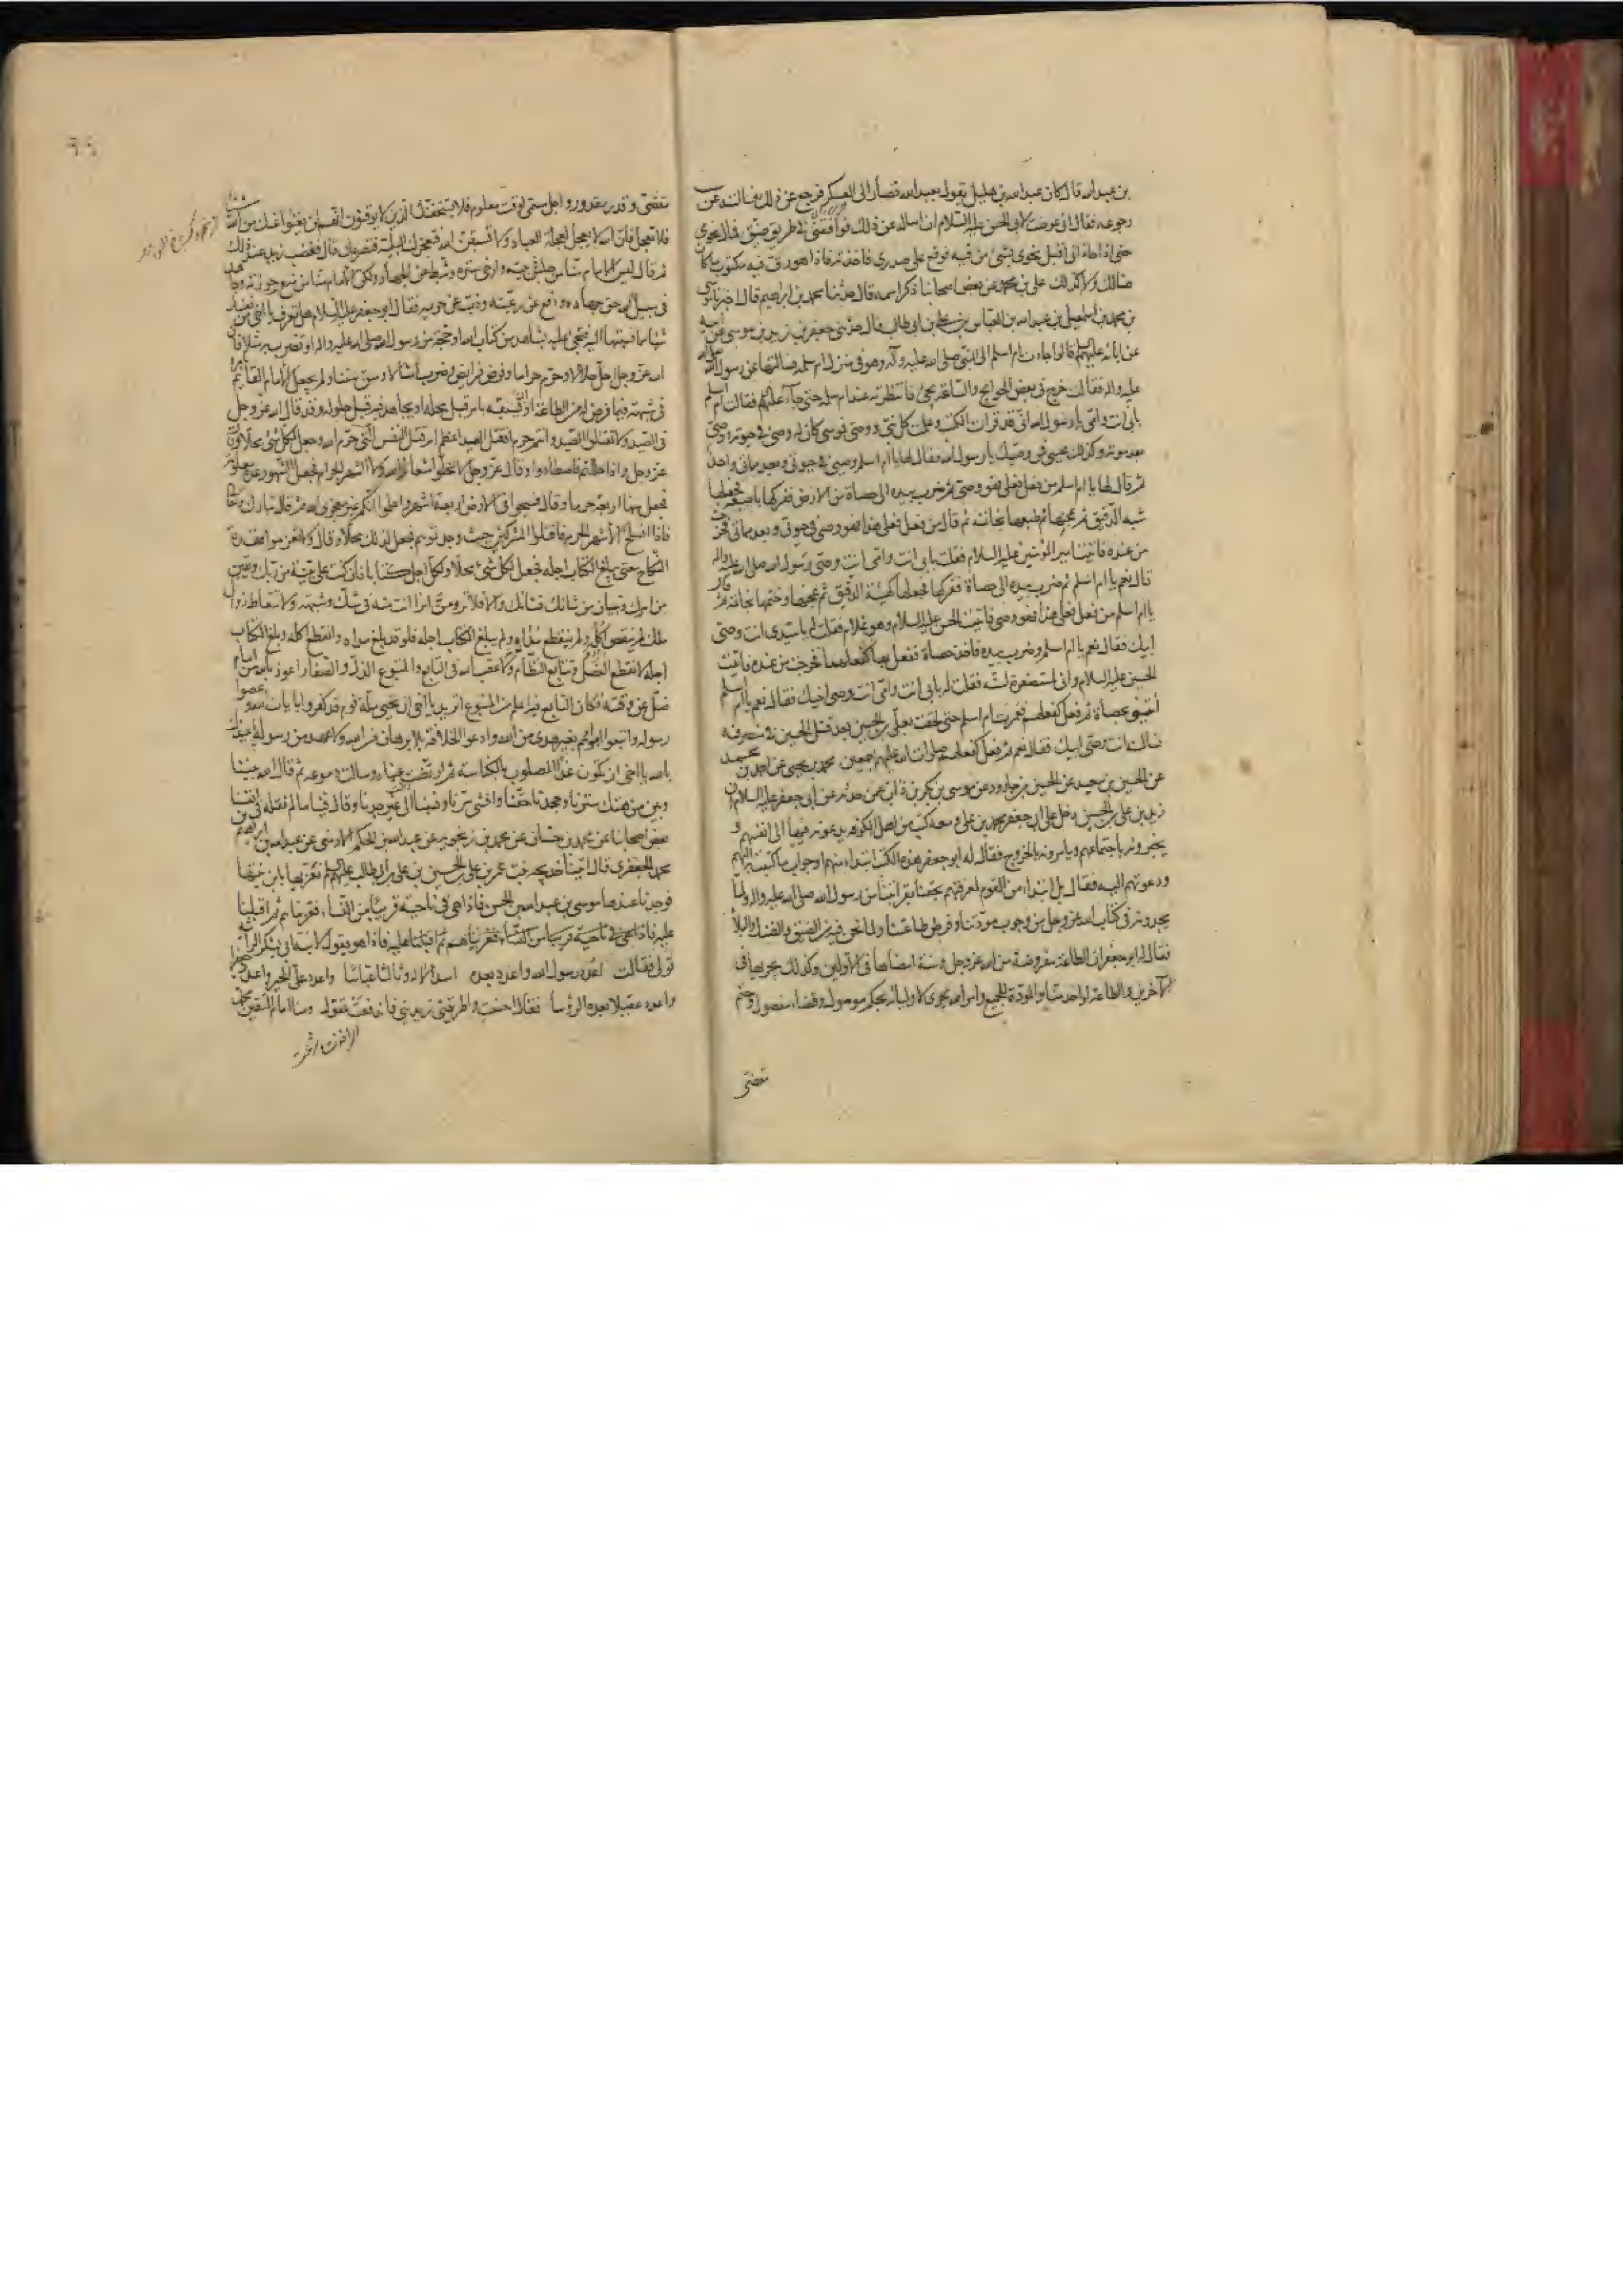 بن عبد الله قال كان عبد الله بن هليل يقول بعبد الله فصار الى العسكر فرجع عن ذلك فسالته عن
رجوعه فقال انى عرضت لابى الحسن عليه السلام ان اساله عن ذلك فوافقنى فى طريق ضيق فمال نحوى
حتى اذا حاذانى اقبل نحوى بشئ من فيه فوقع على صدرى فاخذته فاذا هو رق فيه مكتوب ما كان
هنالك ولا كذلك على بن محمد عن بعض اصحابنا ذكر اسمه قال حدثنا محمد بن ابراهيم قال اخبرنا موسى
بن محمد بن اسمعيل بن عبيد الله بن العباس بن على بن ابى طالب قال حدثنى جعفر بن زيد بن موسى عن ابيه
عن ابائه عليهم السلام قالوا جاءت ام اسلم الى النبى صلى الله عليه وآله وهو فى منزل ام سلمه فسالتها عن رسول الله صلى الله
عليه واله فقالت خرج فى بعض الحوائج والساعة يجئ فانتظرته عند ام سلمه حتى جآء عليه السلام فقالت ام اسلم
بابى انت وامى يا رسول الله انى قد قرات الكتب وعلمت كل نبى ووصى فموسى كان له وصى فى حيوته ووصى
بعد موته وكذلك عيسى فمن وصيك يا رسول الله فقال لها يا ام اسلم وصيى فى حيوتى وبعد مماتى واحد
ثم قال لها يا ام اسلم من فعل فعلى فهو وصيى ثم ضرب بيده الى حصاة من الارض ففركها باصبعه فجعلها
شبه الدقيق ثم عجنها ثم طبعها بخاتمه ثم قال من فعل فعلى هذا فهو وصيى فى حيوتى وبعد مماتى فخرجت
من عنده فاتيت امير المؤمنين عليه السلام فقلت بابى انت وامى انت وصى رسول الله صلى الله عليه واله
قال نعم يا ام اسلم ثم ضرب بيده الى حصاة ففركها فجعلها كهيئة الدقيق ثم عجنها وختمها بخاتمه ثم قال
يا ام اسلم من فعل فعلى هذا فهو وصيى فاتيت الحسن عليه السلام وهو غلام فقلت له يا سيدى انت وصى
ابيك فقال نعم يا ام اسلم وضرب بيده فاخذ حصاة ففعل بها كفعلهما فخرجت من عنده فاتيت
الحسين عليه السلام وانى لمستصغرة لسنه فقلت له بابى انت وامى انت وصى اخيك فقال نعم يا ام اسلم
ايتنى بحصاة ثم فعل كفعلهم فعمرت ام اسلم حتى لحقت بعلى بن الحسين بعد قتل الحسين فى منصرفه
فسالت انت وصى ابيك فقال نعم ثم فعل كفعلهم صلوات الله عليهم اجمعين محمد بن يحيى عن احمد بن محمد
عن الحسين بن سعيد عن الحسين بن الجارود عن موسى بن بكر بن دأب عمن حدثه عن ابى جعفر عليه السلام ان
زيد بن على بن الحسين دخل على ابى جعفر محمد بن على ومعه كتب من اهل الكوفه يدعونه فيها الى انفسهم و
يخبرونه باجتماعهم ويامرونه بالخروج فقال له ابو جعفر هذه الكتب ابتداء منهم او جواب ما كتبت به اليهم
ودعوتهم اليه فقال بل ابتداء من القوم لمعرفتهم بحقنا بقرابتنا من رسول الله صلى الله عليه واله ولما
يجدونه فى كتاب الله عز وجل من وجوب مودتنا وفرض طاعتنا ولما نحن فيه من الضيق والضنك والبلآء
فقال له ابو جعفر ان الطاعة مفروضة من الله عز وجل وسنة امضاها فى الاولين وكذلك يجريها فى
الآخرين والطاعة لواحد منا والمودة للجميع وامر الله يجرى لاوليائه بحكم موصول وقضاء مفصول وحتم
مقضى
مقضى وقدر مقدور واجل مسمى لوقت معلوم فلا يستخفنك الذين لا يوقنون انهم لن يغنوا عنك من الله شيئا
فلا تعجل فان الله لا يعجل لعجلة العباد ولا تسبقن الله فتعجزك البلية فتصرعك قال فغضب زيد عند ذلك
ثم قال ليس الامام منا من جلس فى بيته وارخى ستره وثبط عن الجهاد ولكن الامام منا من منع حوزته وجاهد
فى سبيل الله حق جهاده ودفع عن رعيته وذب عن حريمه فقال ابو جعفر عليه السلام هل تعرف يا اخى من نفسك
شيئا مما نسبتها اليه فتجئ عليه بشاهد من كتاب الله او حجة من رسول الله صلى الله عليه واله او تضرب به مثلا فان
الله عز وجل احل حلالا وحرم حراما وفرض فرايض وضرب امثالا وسن سننا ولم يجعل الامام القائم بامره
فى شبهة فيما فرض له من الطاعة ان يسبقه بامر قبل محله او يجاهد فيه قبل حلوله وقد قال الله عز وجل
فى الصيد ولا تقتلوا الصيد وانتم حرم افقتل الصيد اعظم ام قتل النفس التى حرم الله وجعل لكل شئ محلا وقال
عز وجل واذا حللتم فاصطادوا وقال عز وجل لا تحلوا شعائر الله ولا الشهر الحرام فجعل الشهور عدة معلومة
فجعل منها اربعة حرما وقال فسيحوا فى الارض اربعة اشهر واعلموا انكم غير معجزى الله ثم قال تبارك وتعالى
فاذا انسلخ الاشهر الحرم فاقتلوا المشركين حيث وجدتموهم فجعل لذلك محلا وقال ولا تعزموا عقدة
النكاح حتى يبلغ الكتاب اجله فجعل لكل شئ محلا ولكل اجل كتابا فان كنت على بينة من ربك ويقين
من امرك وتبيان من شانك فشانك والا فلا ترومن امرا انت منه فى شك وشبهة ولا تتعاط زوال
ملك لم ينقض اكله ولم ينقطع مداه ولم يبلغ الكتاب اجله فلو قد بلغ مداه وانقطع اكله وبلغ الكتاب
اجله لانقطع الفصل وتتابع النظام ولاعقب الله فى التابع والمتبوع الذل والصغار اعوذ بالله من امام
ضل عن وقته فكان التابع فيه اعلم من المتبوع اتريد يا اخى ان تحيى ملة قوم قد كفروا بايات الله وعصوا
رسوله واتبعوا اهوائهم بغير هدى من الله وادعوا الخلافة بلا برهان من الله ولا عهد من رسوله اعيذك
بالله يا اخى ان تكون غدا المصلوب بالكناسة ثم ارفضت عيناه وسالت دموعه ثم قال الله بيننا
وبين من هتك سترنا وجحدنا حقنا وافشى سرنا ونسبنا الى غير جدنا وقال فينا ما لم نقله فى انفسنا
بعض اصحابنا عن محمد بن حسان عن محمد بن رنجويه عن عبد الله بن الحكم الارمنى عن عبد الله بن ابراهيم بن
محمد الجعفرى قال اتينا خديجه بنت عمر بن على بن الحسين بن على بن ابى طالب عليهم السلام نعزيها بابن بنتها
فوجدنا عندها موسى بن عبد الله بن الحسن فاذا هى فى ناحية قريبا من النساء فعزيناهم ثم اقبلنا
عليه فاذا هى فى ناحية قريبا من النساء فعزيناهم ثم اقبلنا عليه فاذا هو يقول لابنة ابى يشكر الراثية
قولى فقالت اعدد رسول الله واعدد بعده اسد الاله وثالثا عباسا واعدد على الخير واعدد جعفرا
واعدد عقيلا بعده الرؤسا فقال احسنت واطربتنى زيدينى فاندفعت تقول ومنا امام المتقين محمد